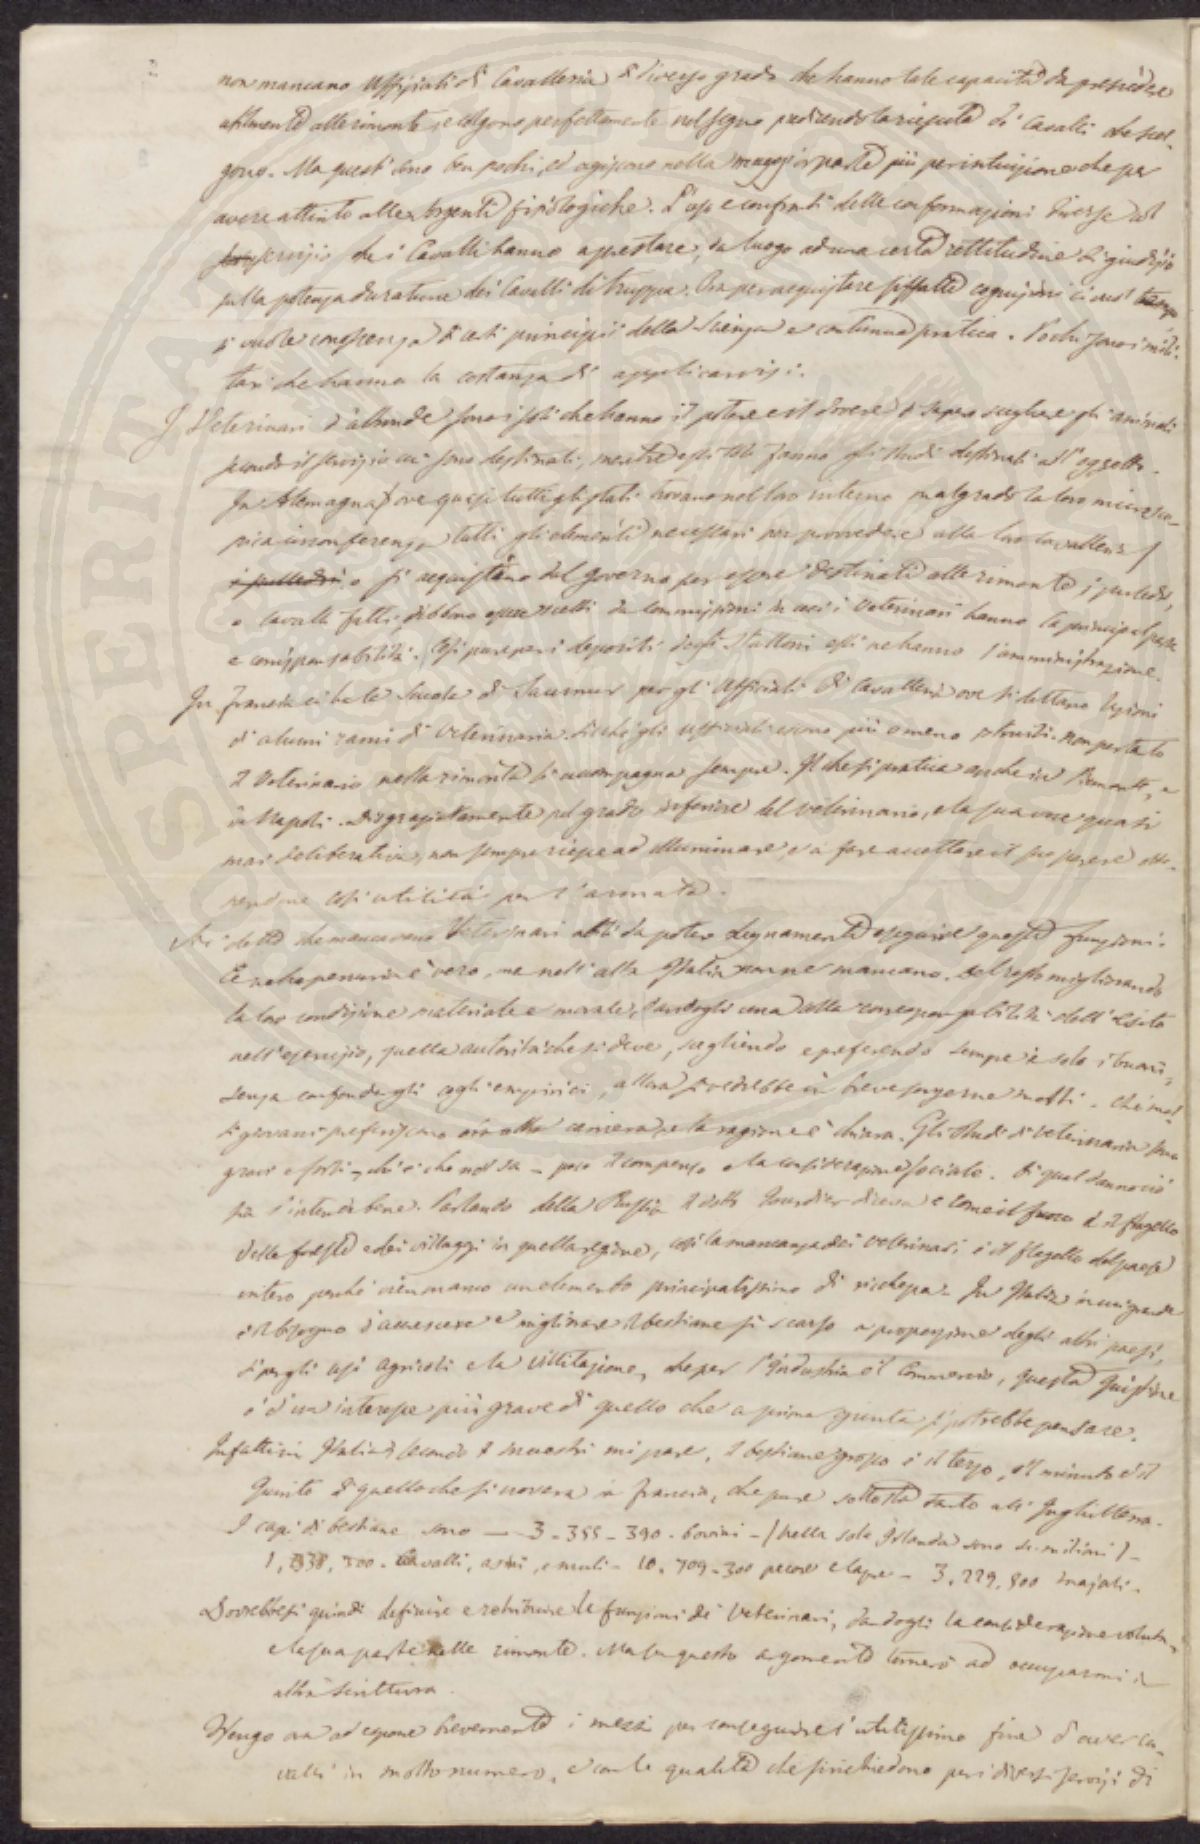 non mancano Uffiziali di Cavalleria di diverso grado che hanno tale capacità da presiedere
utilmente alle rimonte, e colgono perfettamente nel segno predicendo la riescita di cavalli che scel-
gono. Ma questi sono ben pochi, ed agiscono nella maggior parte più per intuizione che per
avere attinto alle sorgenti fisiologiche. L'uso e confronti delle conformazioni diverse col
servizio che i Cavalli hanno a prestare, da luogo ad una certa rettitudine di giudizio
sulla potenza duratura dei Cavalli di truppa. Ora per acquistare siffatte cognizioni ci vuol tempo
si vuole conoscenza di certi principii della Scienza e continua pratica. Pochi sono i mili-
tari che hanno la costanza di applicarvisi.
I Veterinari d'altronde sono i soli che hanno il potere e il dovere di sapere scegliere gli animali
secondo il servizio cui sono destinati, mentre essi soli fanno gli studi destinati all'oggetto.
In Alemagna (ove quasi tutti gli stati trovano nel loro interno malgrado la loro microsco-
pica circonferenza tutti gli elementi necessari per provvedere alla loro cavalleria)
o si acquistano dal governo per essere destinati alle rimonte i puledri,
o cavalli fatti, debbono essere scelti da Commissioni in cui i Veterinari hanno la principal parte
e corrisponsabilità. Così pure per i depositi degli Stalloni essi ne hanno l'amministrazione.
In Francia ci ha la Scuola di Saumur per gli Ufficiali di Cavalleria ove si dettano lezioni
di alcuni rami di Veterinaria. Sicchè gli ufficiali escono più o meno istruiti. Non pertanto
il Veterinario nella rimonta li accompagna sempre. Il che si pratica anche in Piemonte, e
in Napoli. Disgraziatamente pel grado inferiore del veterinario, e la sua voce quasi
mai deliberativa, non sempre riesce ad illuminare, e a fare accettare il suo parere
così utilità per l'armata.
Si è detto che mancavano Veterinari abili da poter degnamente eseguire queste funzioni.
E molta penuria è vero, ma nell'alta Italia non ne mancano. Del resto migliorando
la loro condizione materiale e morale, dandogli una alta corresponsabilità dell'esito
nell'esercizio, quella autorità che si deve, scegliendo e preferendo sempre e solo i buoni,
senza confondergli cogli empirici, allora si vedrebbe in breve sorgerne molti.
i giovani preferiscono altra carriera, e la ragione è chiara. Gli studi di veterinaria sono
gravi e forti, chi è che nol sa - poco il compenso e la considerazione sociale. Di qual danno ciò
sia s'intende bene. Parlando della Russia il dotto Gourdier diceva e come il fuoco è il flagello
delle foreste e dei villaggi in quella regione, così la mancanza dei veterinari è il flagello del paese
intero perchè vien manco un elemento principalissimo di ricchezza. In Italia in cui grande
è il bisogno d'accrescere e migliorare il bestiame sì scarso a proporzione degli altri paesi,
sì per gli usi agricoli e la vittitazione, che per l'industria e il Commercio, questa quistione
è d'un interesse più grave di quello che a prima giunta si potrebbe pensare.
Infatti in Italia secondo il mi pare, il bestiame grosso è il terzo, e il minuto è il
quinto di quello che si novera in Francia, che pure sottostà tanto all'Inghilterra.
I capi di bestiame sono — 3-355-390. bovini - (nella sola Irlanda sono milioni) -
1,338,500. Cavalli, asini, e muli - 10,709-300 pecore e capre - 3,229,800 majali.
Dovrebbesi quindi definire e retribuire le funzioni de' Veterinari, dandogli la considerazione voluta
e la sua parte nelle rimonte. Ma su questo argomento tornerò ad occuparmi in
altra scrittura.
Vengo ora ad esporre brevemente i mezzi per conseguire l'utilissimo fine d'aver ca-
valli in molto numero, e con le qualità che si richiedono per i diversi servizi di